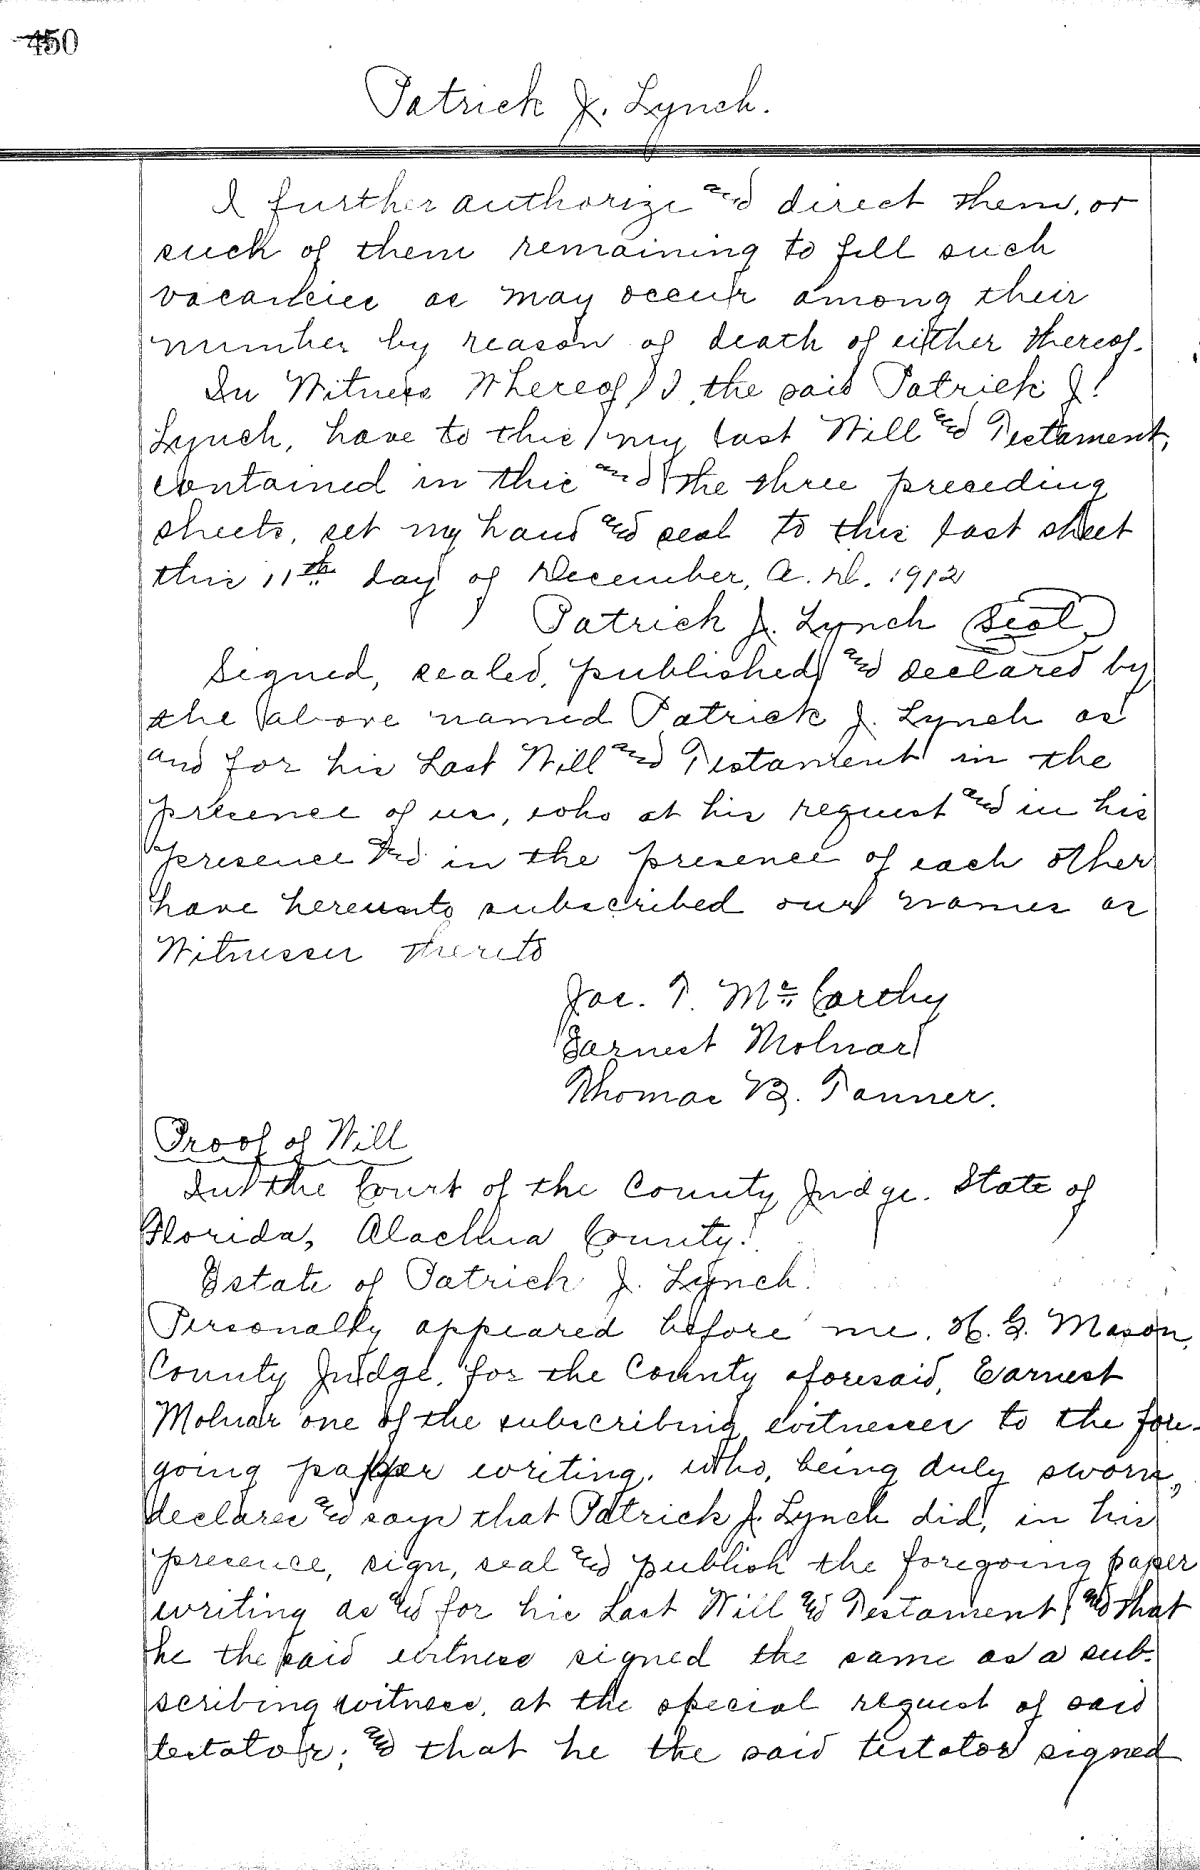 450
Patrick J. Lynch.
I further authorize and direct them, or
such of them remaining to fill such
vacancies as may occur among their
number by reason of death of either thereof.
In Witness Whereof, I, the said Patrick J.
Lynch, have to this my last Will and Testament,
contained in this and the three preceding
sheets, set my hand and seal to this last sheet
this 11th day of December, A. D. 1912
Patrick J. Lynch (Seal)
Signed, sealed, published and declared by
the above named Patrick J. Lynch as
and for his Last Will and Testament in the
presence of us, who at his request and in his
presence and in the presence of each other
have hereunto subscribed our names as
Witnesses thereto
Jas. T. McCarthy
Earnest Molnar
Thomas B. Tanner.
Proof of Will
In the Court of the County Judge. State of
Florida, Alachua County.
Estate of Patrick J. Lynch.
Personally appeared before me, H. G. Mason,
County Judge, for the County aforesaid, Earnest
Molnar one of the subscribing witnesses to the fore-
going paper writing, who, being duly sworn,
declares and says that Patrick J. Lynch did, in his
presence, sign, seal and publish the foregoing paper
writing as and for his Last Will and Testament, and that
he the said witness signed the same as a sub-
scribing witness, at the special request of said
testator; and that he the said testator signed